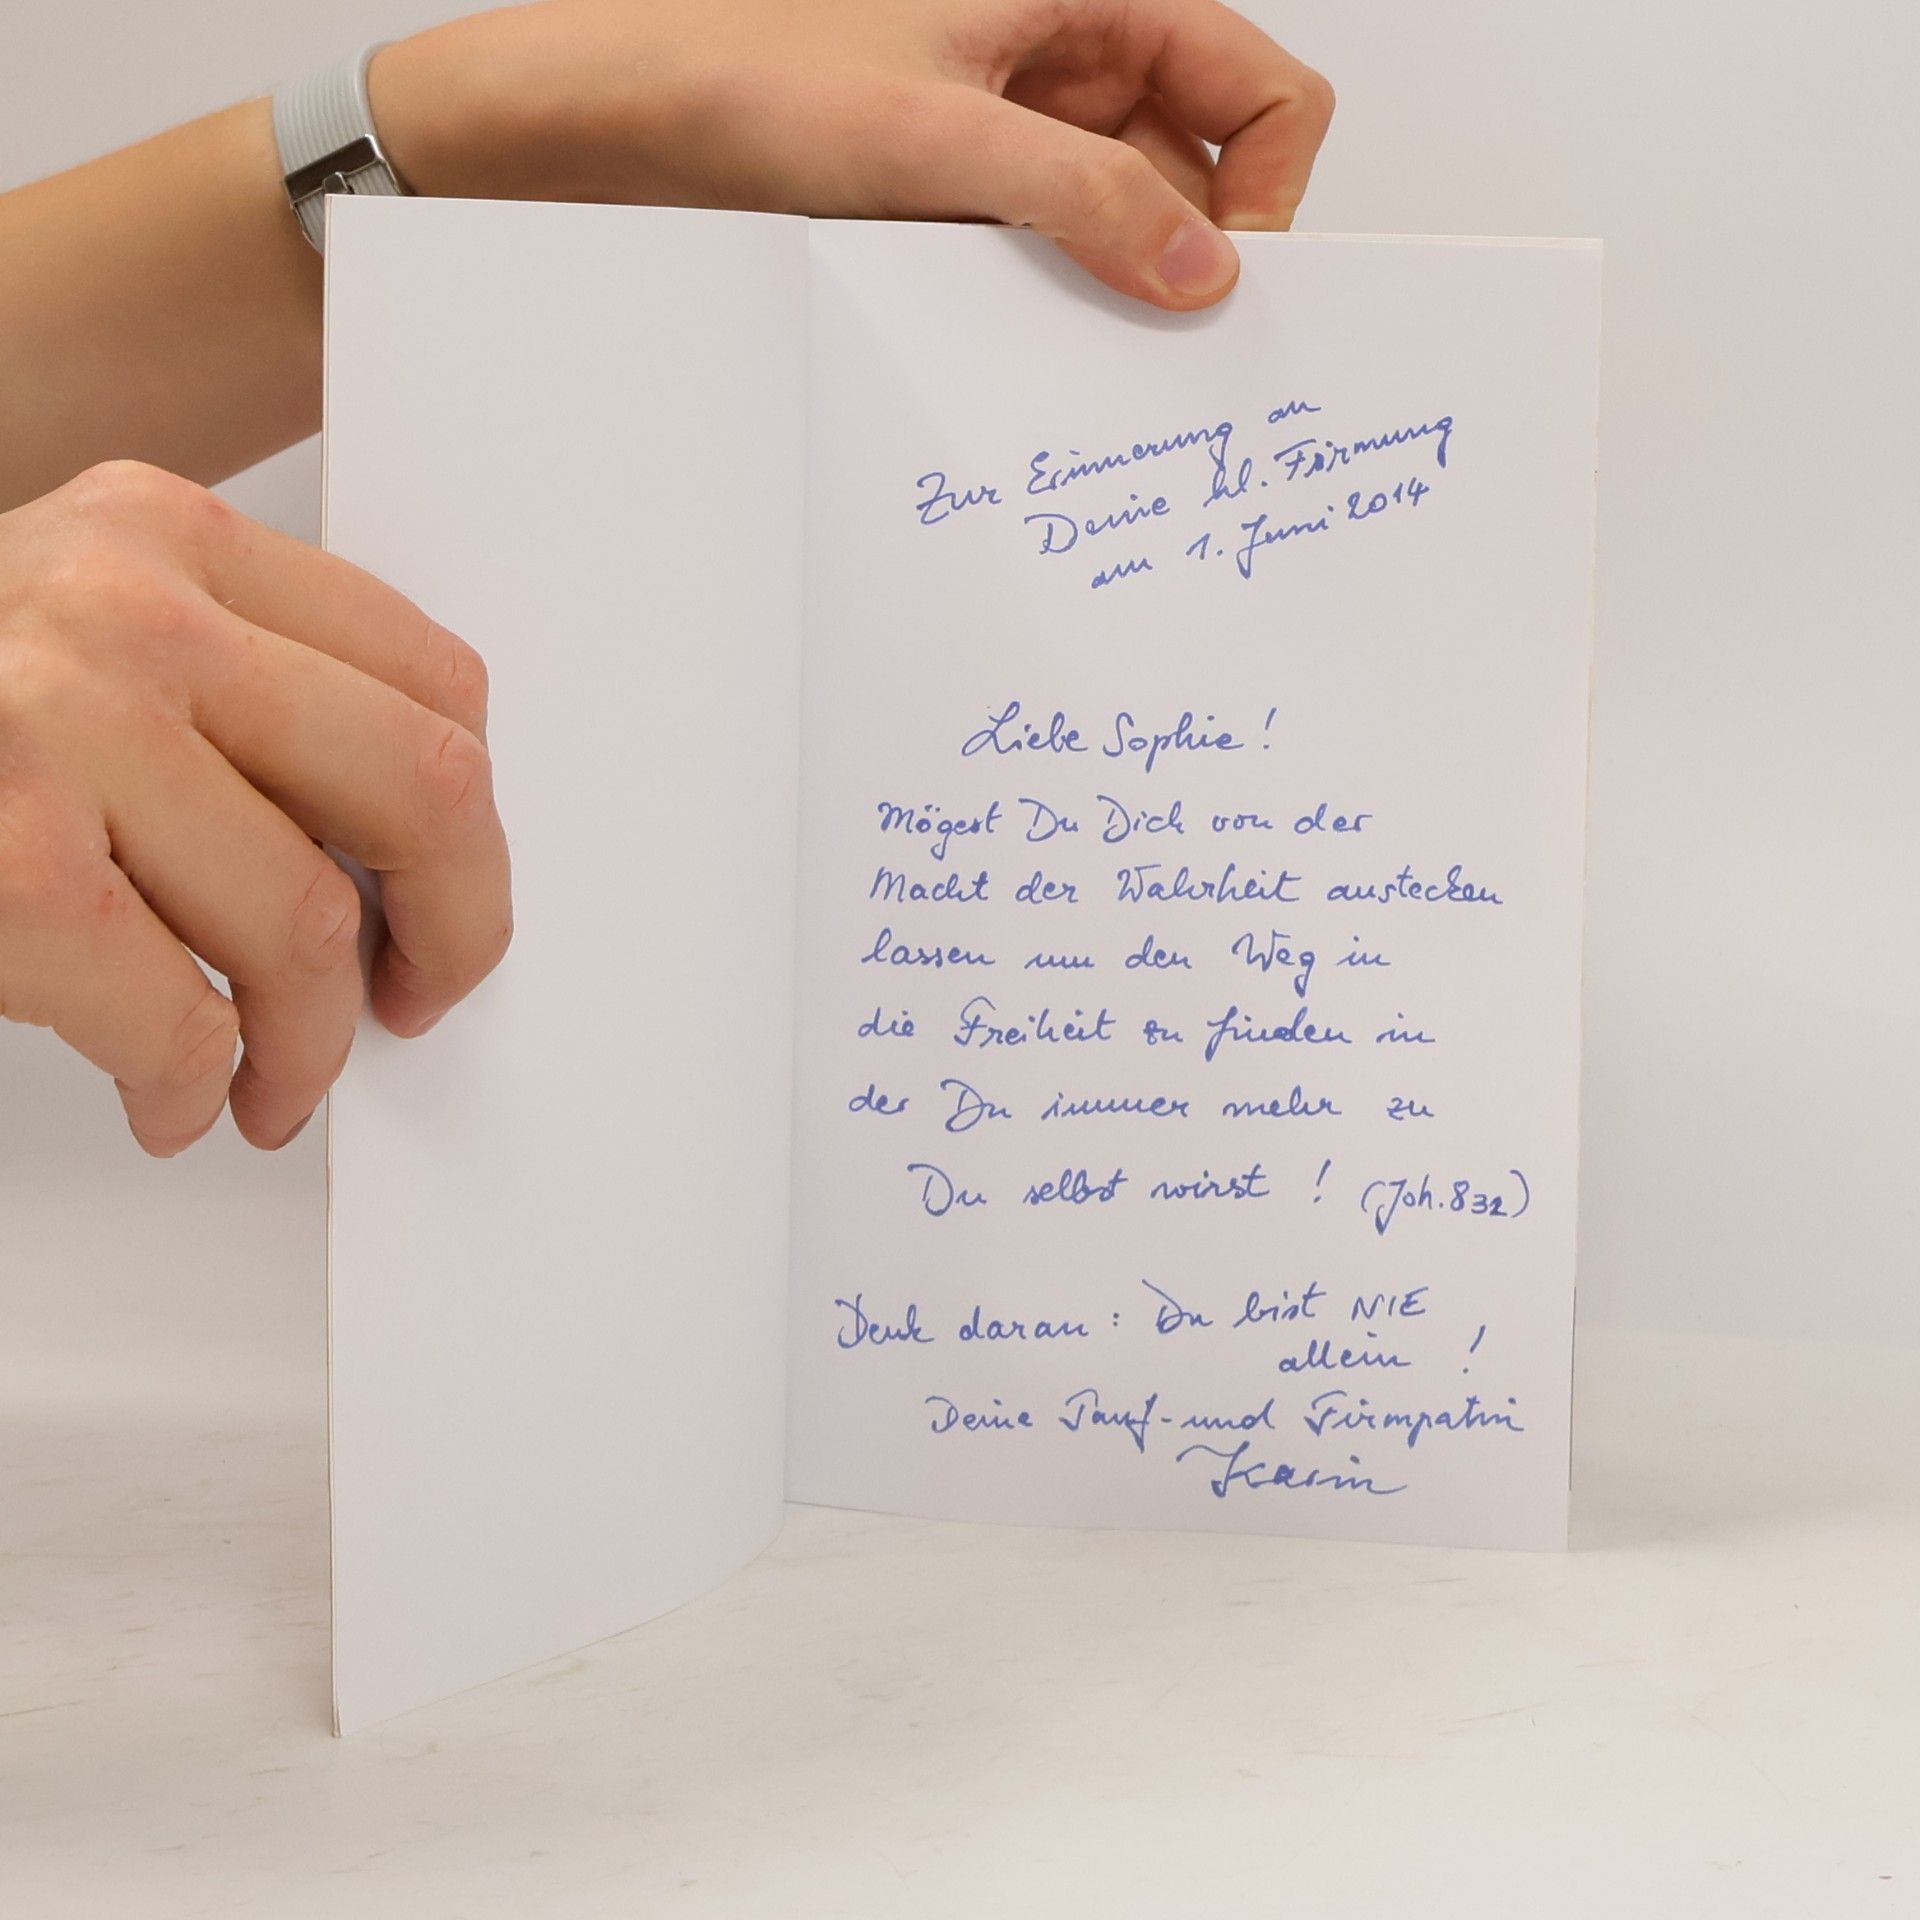 Zur Erinnerung an
Deine hl. Firmung
am 1. Juni 2014
Liebe Sophie!
Mögest Du Dich von der
Macht der Wahrheit anstecken
lassen um den Weg in
die Freiheit zu finden in
der Du immer mehr zu
Du selbst wirst! (Joh. 8 32)
Denk daran: Du bist NIE
allein!
Deine Tauf- und Firmpatin
Karin